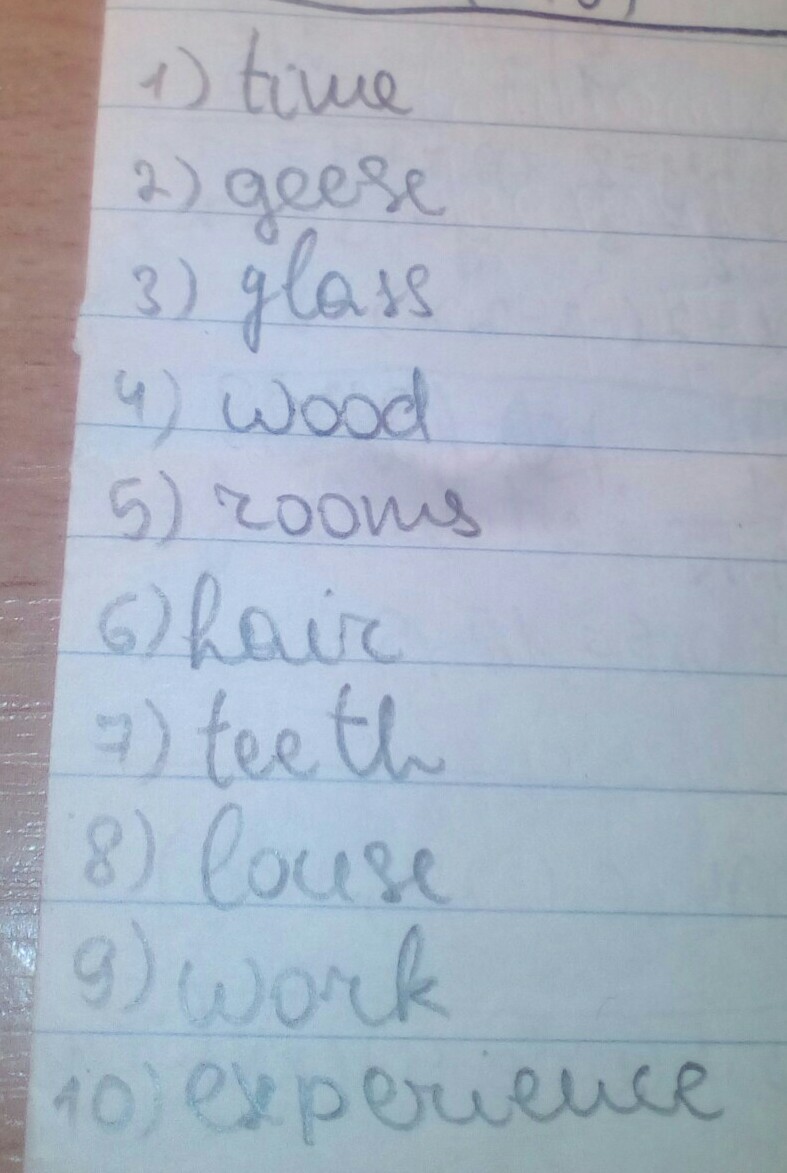 1) time
2) geese
3) glass
4) wood
5) rooms
6) hair
7) teeth
8) louse
9) work
10) experience